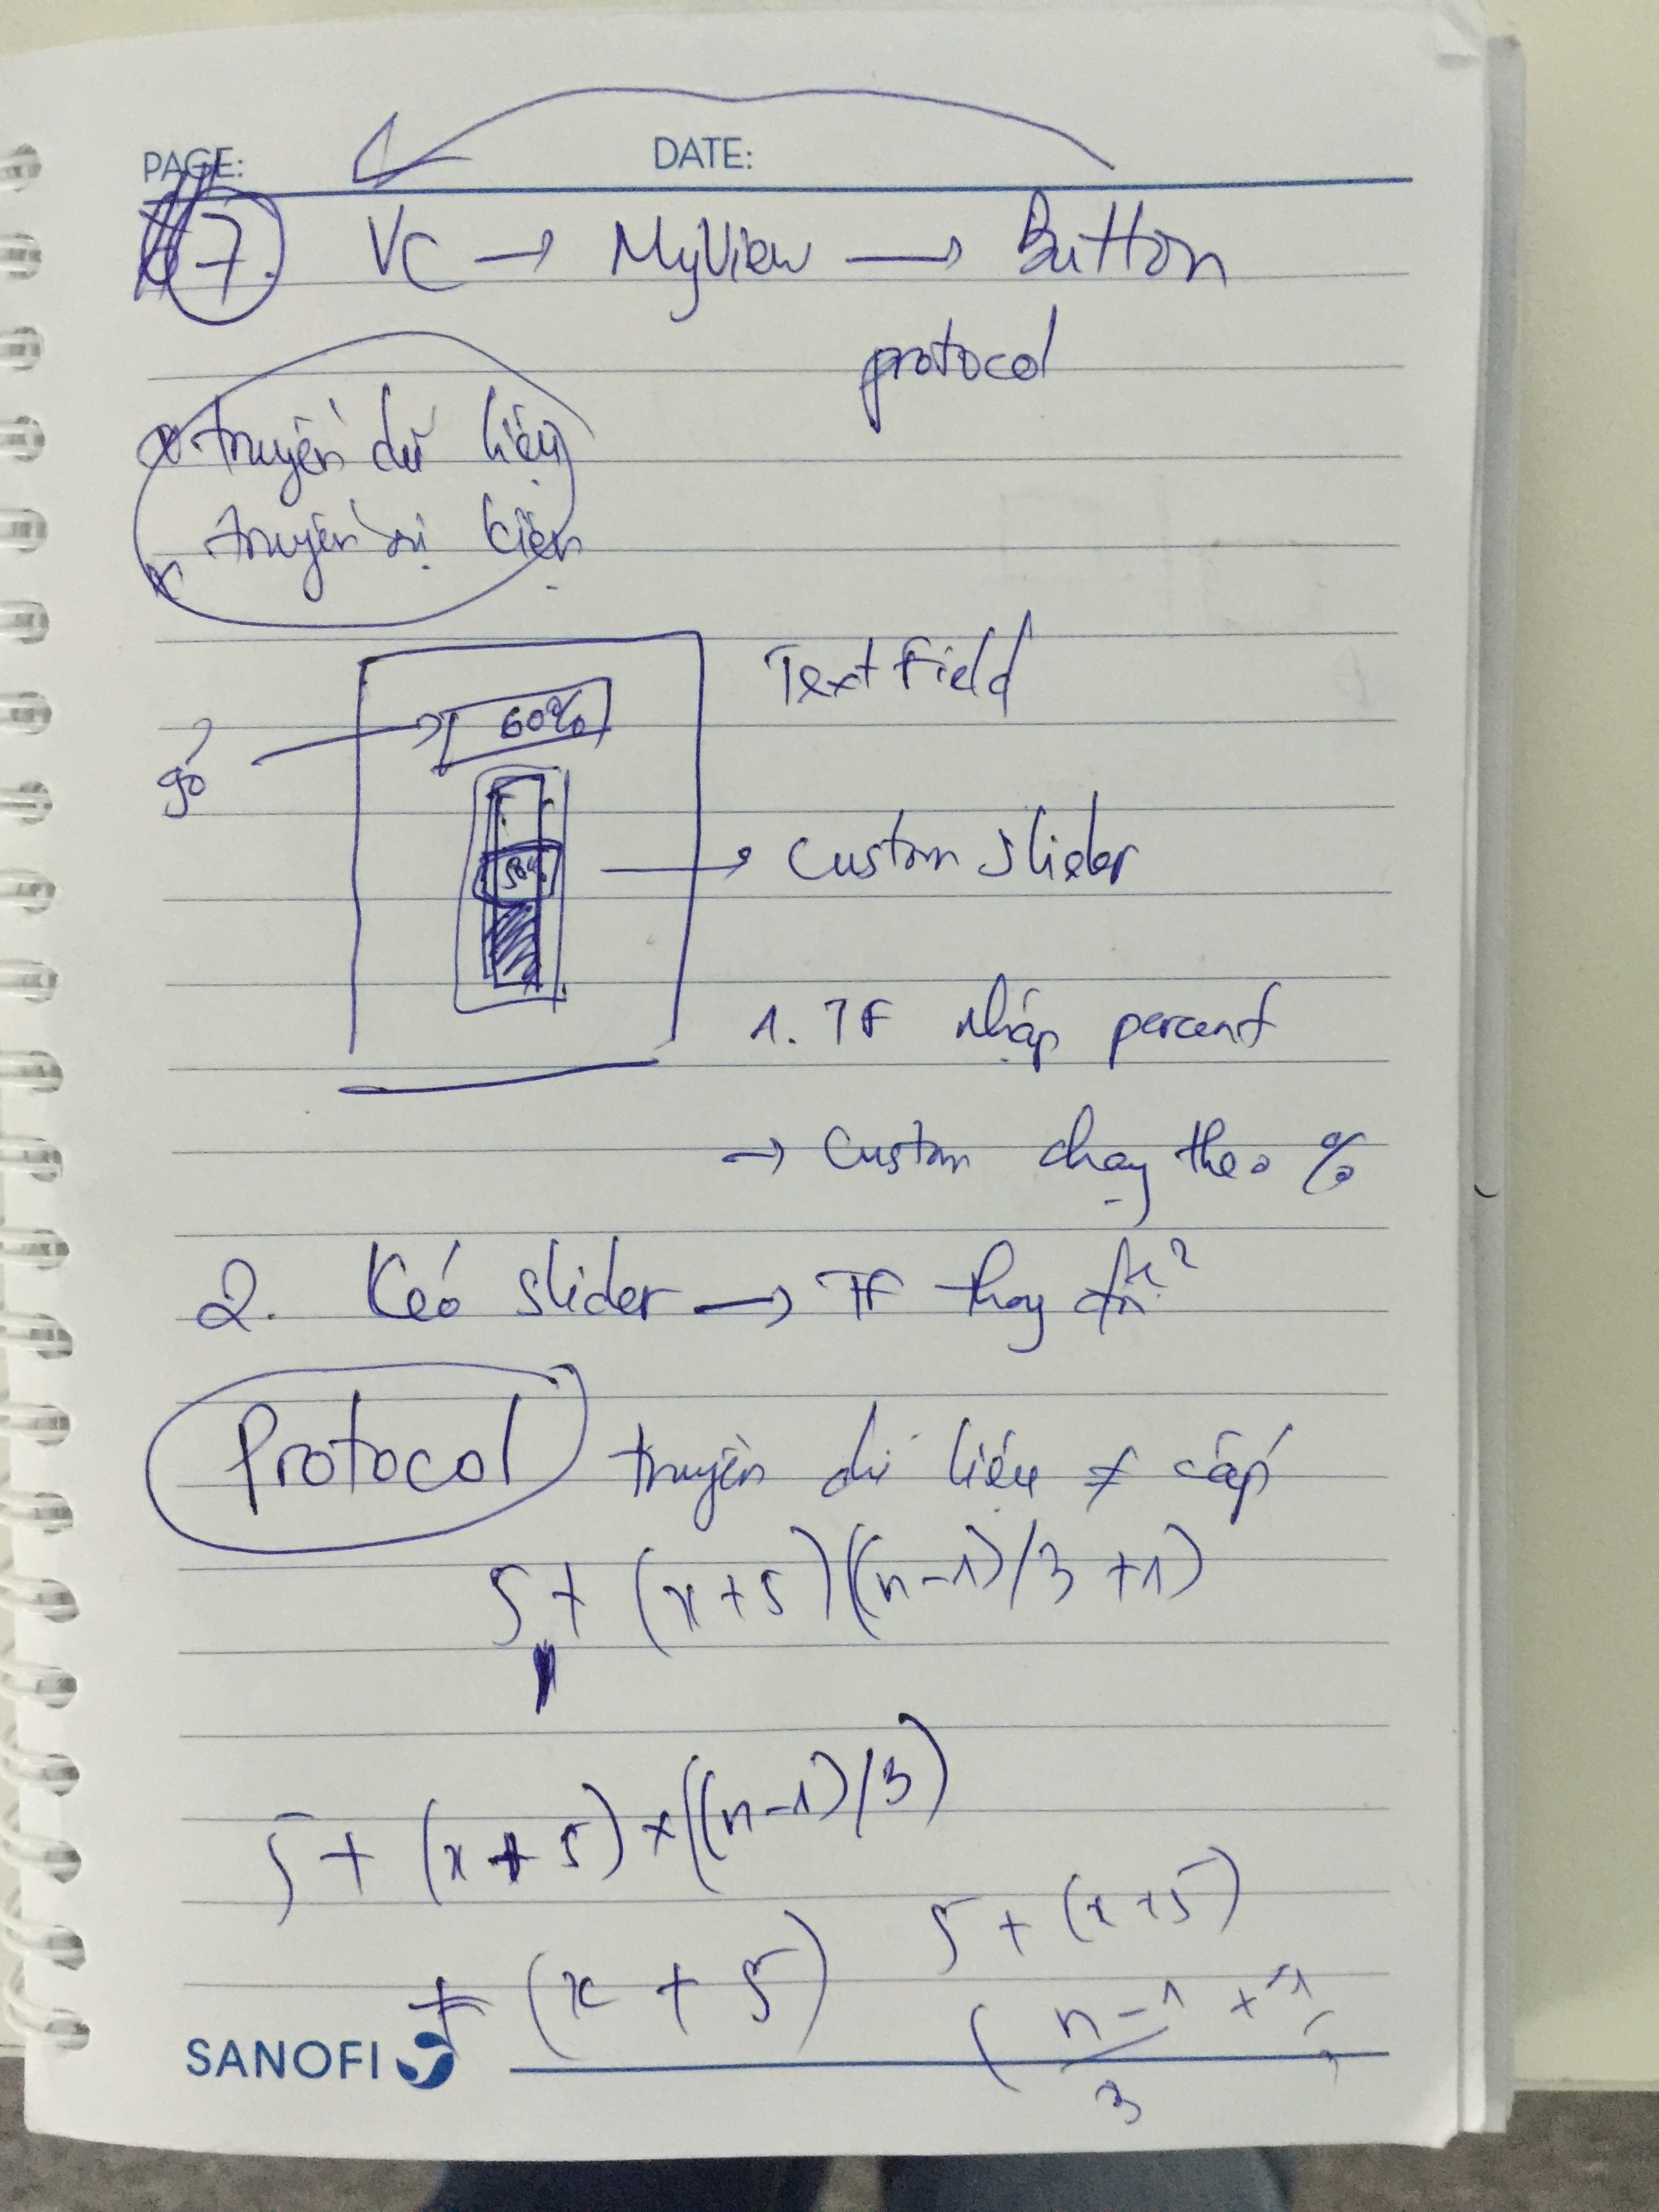 PAGE: DATE:
7. VC → MyView → Button
protocol
x truyền dữ liệu
x truyền sự kiện
Text Field
60%
gõ
50%
→ Custom Slider
1. TF nhập percent
→ Custom chạy theo %
2. Kéo slider → TF thay đổi
Protocol truyền dữ liệu ≠ cấp
5 + (x+5)((n-1)/3 +1)
5 + (x+5) x ((n-1)/3)
+ (x + 5)
5 + (x+5)
(n-1 + 1
3
SANOFI